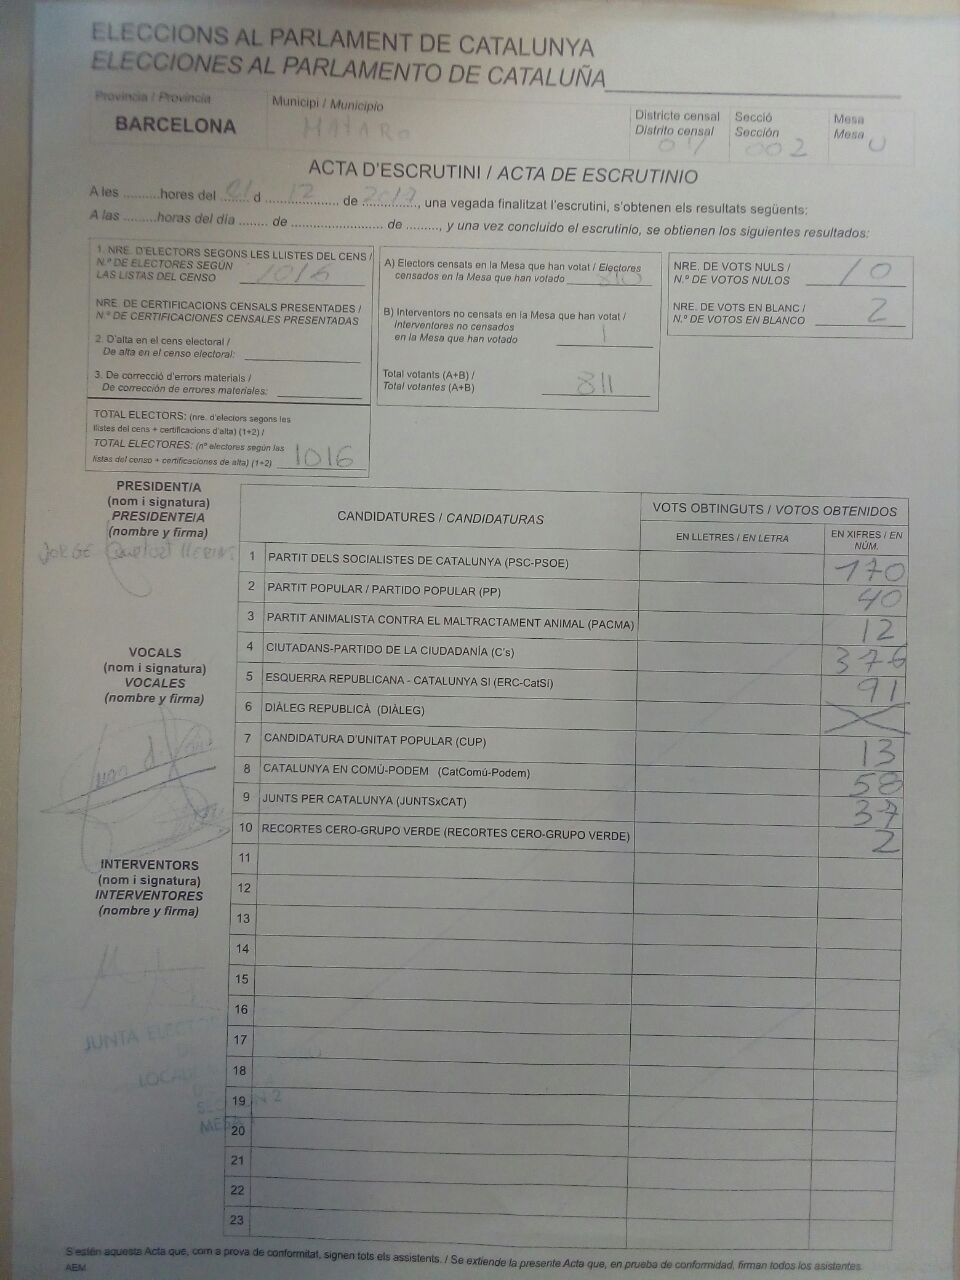 ELECCIONS AL PARLAMENT DE CATALUNYA
ELECCIONES AL PARLAMENTO DE CATALUÑA
Provincia / Provincia
BARCELONA
Municipi / Municipio
MATARO
Districte censal
Distrito censal
04
Secció
Sección
002
Mesa
Mesa U
ACTA D'ESCRUTINI / ACTA DE ESCRUTINIO
A les ..........hores del 21 d 12 de 2017, una vegada finalitzat l'escrutini, s'obtenen els resultats següents:
A las .........horas del día ........ de ......................... de ........., y una vez concluido el escrutinio, se obtienen los siguientes resultados:
1. NRE. D'ELECTORS SEGONS LES LLISTES DEL CENS /
N.º DE ELECTORES SEGÚN
LAS LISTAS DEL CENSO 1016
NRE. DE CERTIFICACIONS CENSALS PRESENTADES /
N.º DE CERTIFICACIONES CENSALES PRESENTADAS
2. D'alta en el cens electoral /
De alta en el censo electoral:
3. De correcció d'errors materials /
De corrección de errores materiales:
TOTAL ELECTORS: (nre. d'electors segons les
llistes del cens + certificacions d'alta) (1+2) /
TOTAL ELECTORES: (nº electores según las
listas del censo + certificaciones de alta) (1+2) 1016
A) Electors censats en la Mesa que han votat / Electores
censados en la Mesa que han votado 810
B) Interventors no censats en la Mesa que han votat /
Interventores no censados
en la Mesa que han votado 1
Total votants (A+B) /
Total votantes (A+B) 811
NRE. DE VOTS NULS /
N.º DE VOTOS NULOS 10
NRE. DE VOTS EN BLANC /
N.º DE VOTOS EN BLANCO 2
PRESIDENT/A
(nom i signatura)
PRESIDENTE/A
(nombre y firma)
JORGE
VOCALS
(nom i signatura)
VOCALES
(nombre y firma)
Juan
INTERVENTORS
(nom i signatura)
INTERVENTORES
(nombre y firma)
JUNTA ELECTOR
LOCAL
MESA
CANDIDATURES / CANDIDATURAS
VOTS OBTINGUTS / VOTOS OBTENIDOS
EN LLETRES / EN LETRA
EN XIFRES / EN
NÚM.
1 PARTIT DELS SOCIALISTES DE CATALUNYA (PSC-PSOE) 170
2 PARTIT POPULAR / PARTIDO POPULAR (PP) 40
3 PARTIT ANIMALISTA CONTRA EL MALTRACTAMENT ANIMAL (PACMA) 12
4 CIUTADANS-PARTIDO DE LA CIUDADANÍA (C's) 376
5 ESQUERRA REPUBLICANA - CATALUNYA SI (ERC-CatSí) 91
6 DIÀLEG REPUBLICÀ (DIÀLEG)
7 CANDIDATURA D'UNITAT POPULAR (CUP) 13
8 CATALUNYA EN COMÚ-PODEM (CatComú-Podem) 58
9 JUNTS PER CATALUNYA (JUNTSxCAT) 37
10 RECORTES CERO-GRUPO VERDE (RECORTES CERO-GRUPO VERDE) 2
11
12
13
14
15
16
17
18
19
20
21
22
23
S'estén aquesta Acta que, com a prova de conformitat, signen tots els assistents. / Se extiende la presente Acta que, en prueba de conformidad, firman todos los asistentes.
AEM